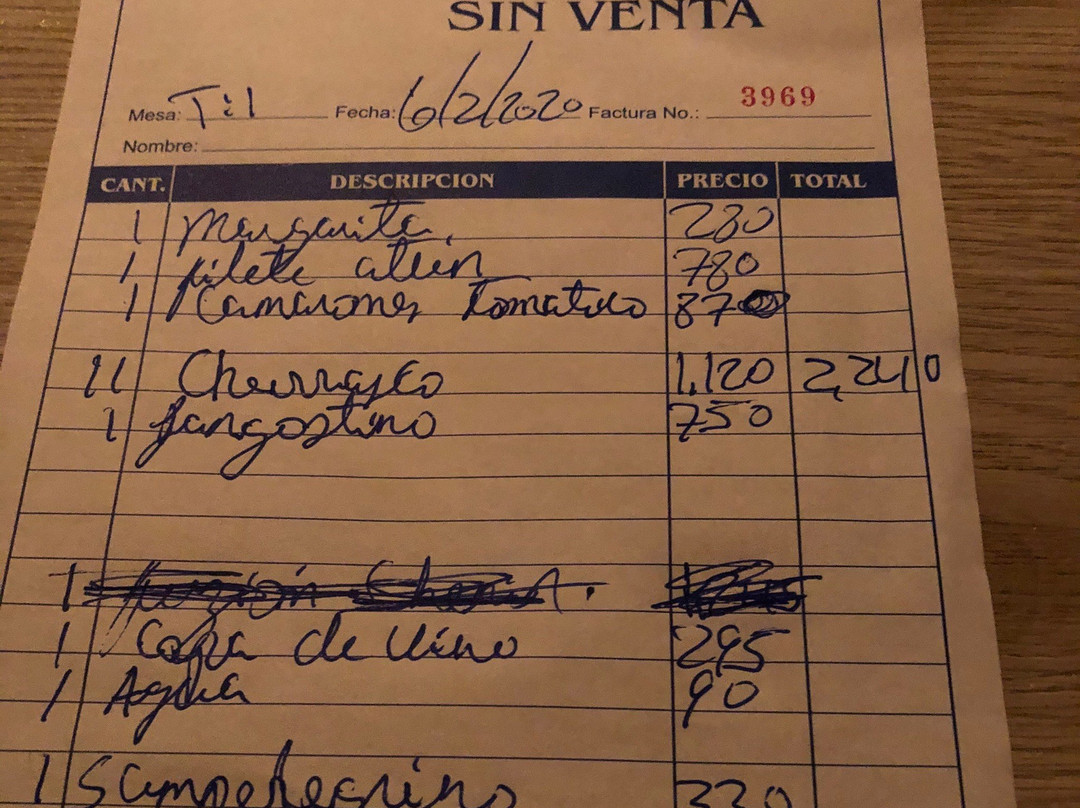 SIN VENTA
Mesa: Til Fecha: 6/2/2020 Factura No.: 3969
Nombre:
CANT. DESCRIPCION PRECIO TOTAL
1 Margarita 280
1 filete atún 780
1 Camarones 87
11 Churrasco 1,120 2,240
1 Langostino 750
1
1 Copa de Vino 295
1 Agua 90
1 Sampelegrino 220